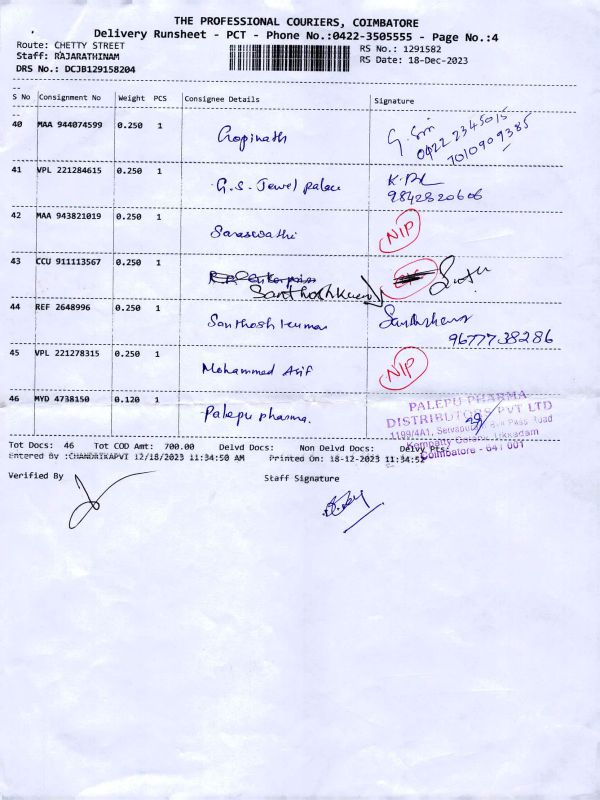 THE PROFESSIONAL COURIERS, COIMBATORE
Delivery Runsheet - PCT - Phone No.:0422-3505555 - Page No.:4
Route: CHETTY STREET
RS No.: 1291582
Staff: RAJARATHINAM
RS Date: 18-Dec-2023
DRS No.: DCJB129158204
S No Consignment No Weight PCS Consignee Details Signature
40 MAA 944074599 0.250 1 Gopinath
0422 2345015
7010909385
41 VPL 221284615 0.250 1 G.S. Jewel palace
9842820606
42 MAA 943821019 0.250 1 Saraswathi NIP
43 CCU 911113567 0.250 1
Santhoshkumar
44 REF 2648996 0.250 1 Santhosh kumar
9677738286
45 VPL 221278315 0.250 1 Mohammed Asif NIP
46 MYD 4738150 0.120 1 Palepu pharma.
PALEPU PHARMA
DISTRIBUTORS PVT LTD
1199/4A1, Bye Pass Road
Coimbatore - 641 001
Tot Docs: 46 Tot COD Amt: 700.00 Delvd Docs: Non Delvd Docs: Delvy Pts:
Entered By :CHANDRIKAPVT 12/18/2023 11:34:50 AM Printed On: 18-12-2023 11:34:52
Verified By
Staff Signature